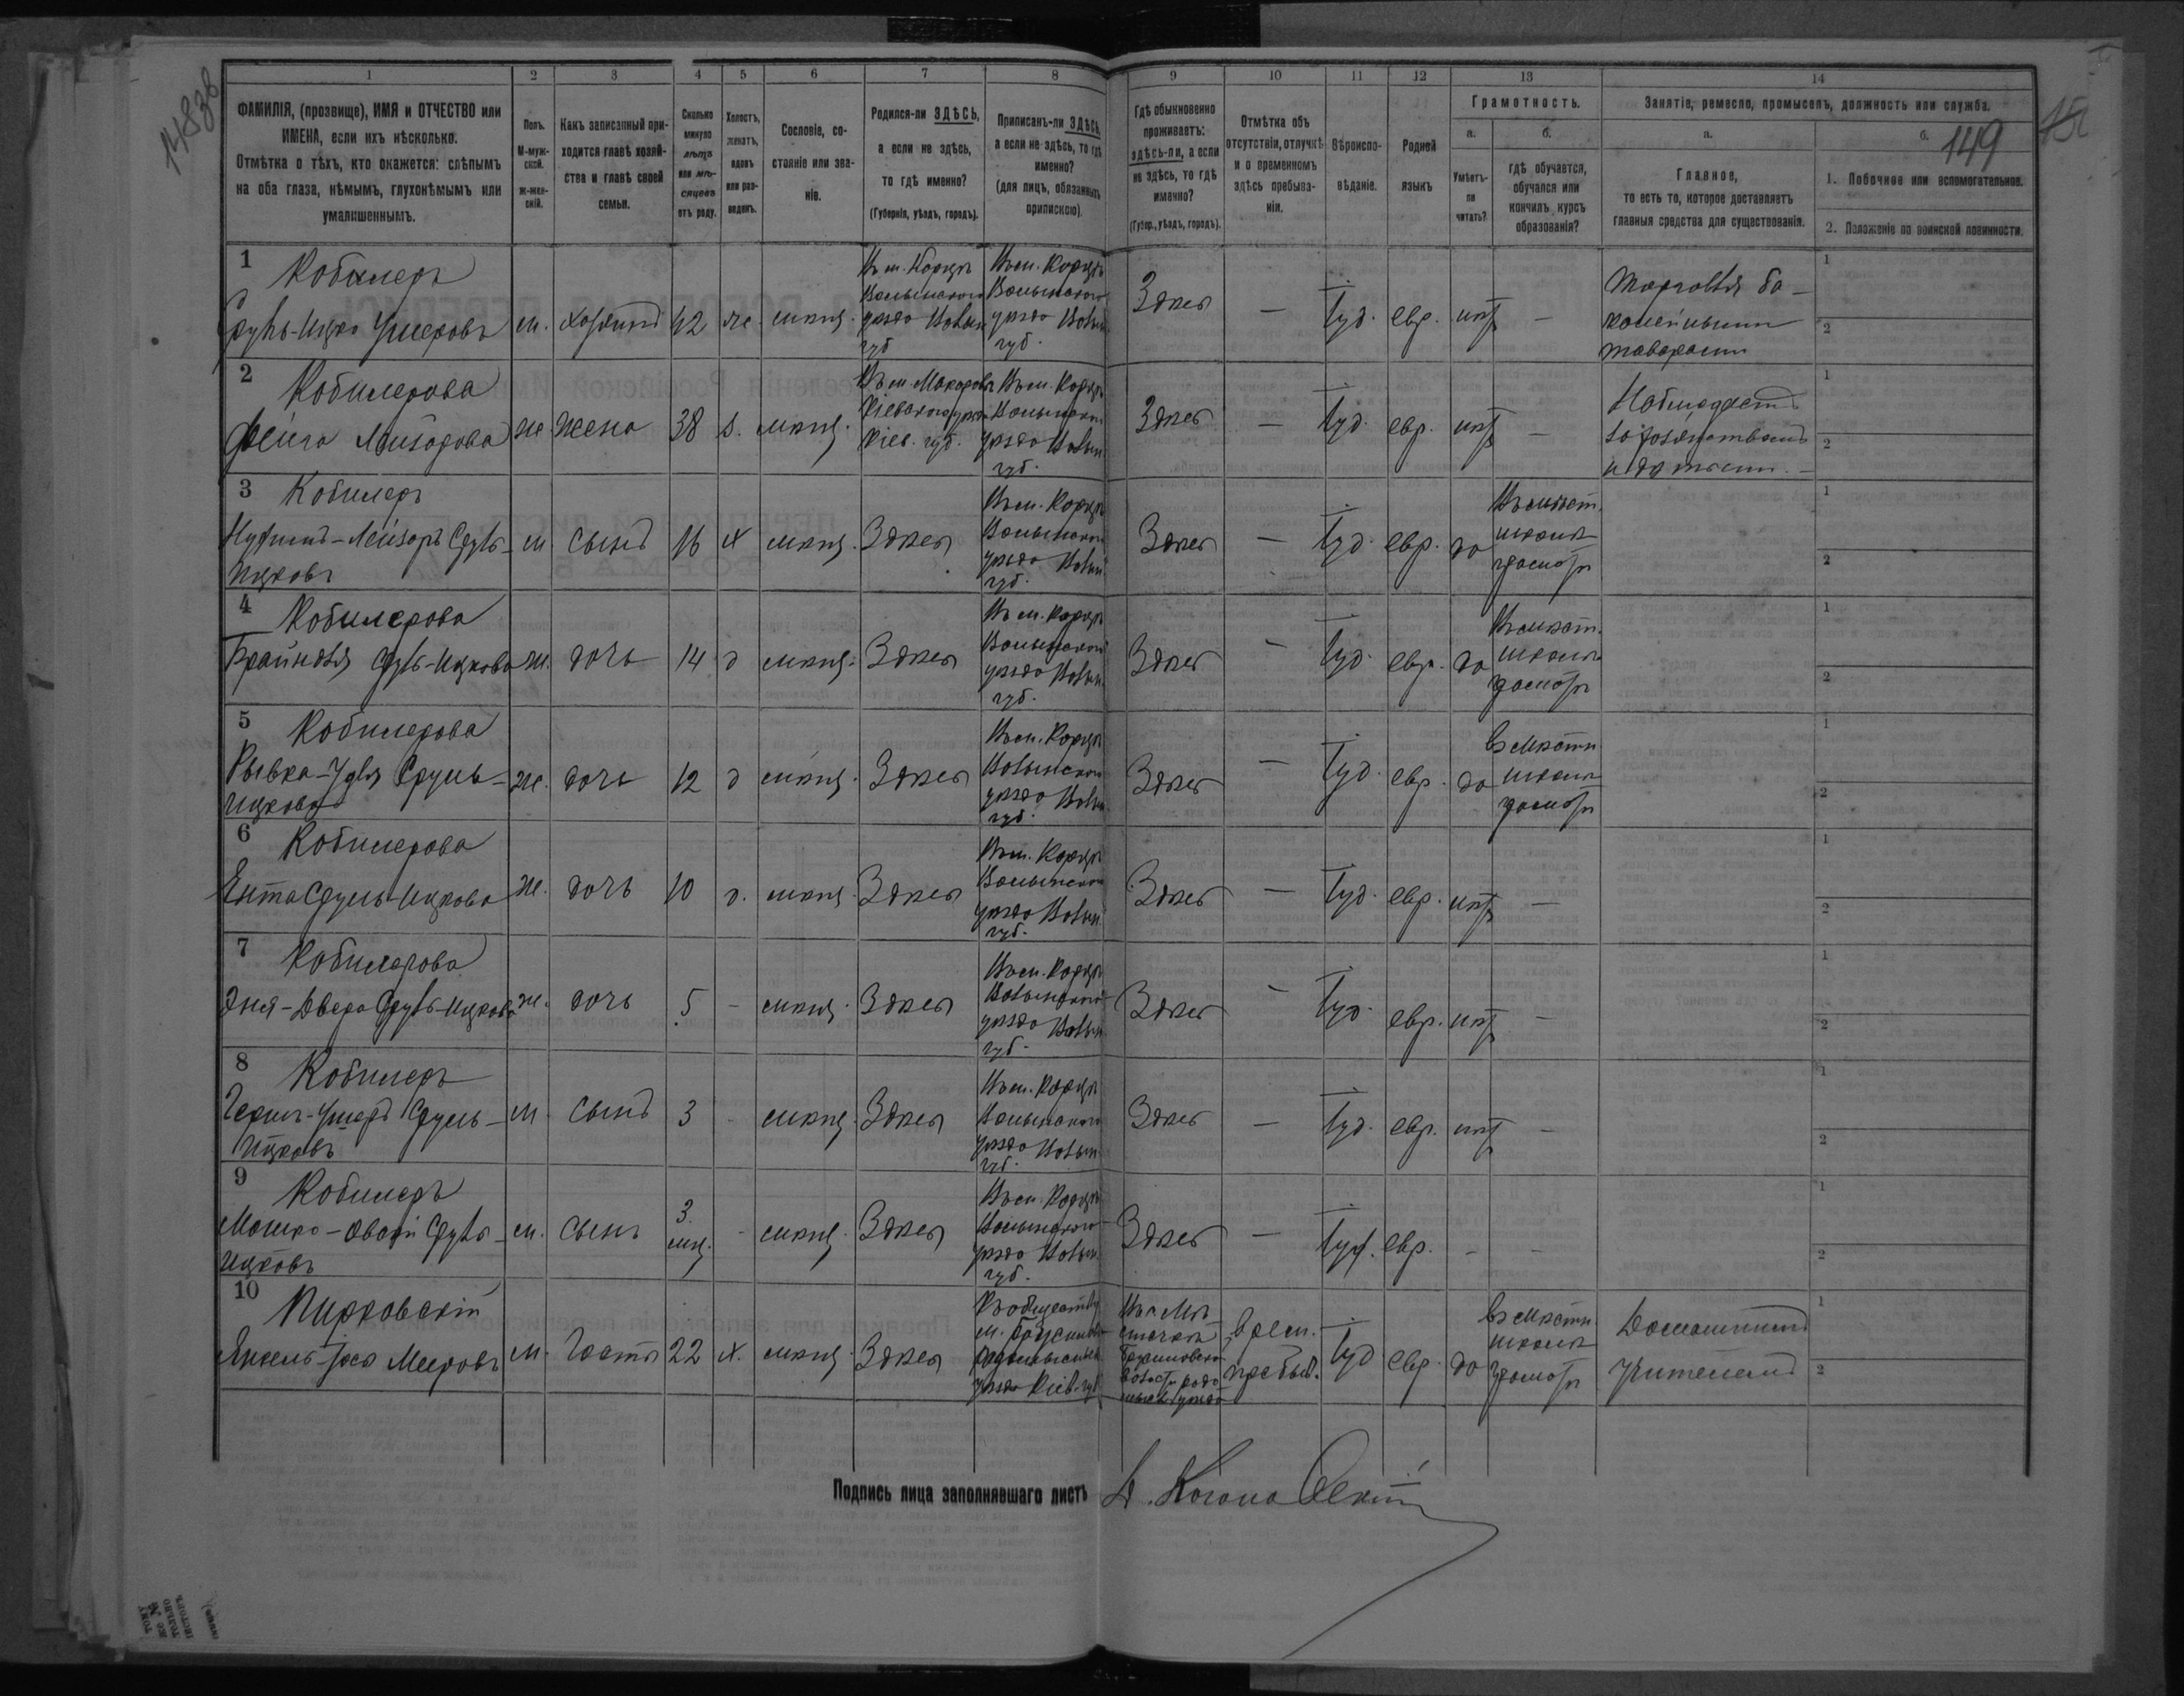 14838
149
1 2 3 4 5 6 7 8 9 10 11 12 13 14
ФАМИЛІЯ, (прозвище), ИМЯ и ОТЧЕСТВО или
ИМЕНА, если ихъ нѣсколько.
Отмѣтка о тѣхъ, кто окажется: слѣпымъ
на оба глаза, нѣмымъ, глухонѣмымъ или
умалишеннымъ.
Полъ.
М-муж-
ской.
ж-жен-
скій.
Какъ записанный при-
ходится главѣ хозяй-
ства и главѣ своей
семьи.
Сколько
минуло
лѣтъ
или мѣ-
сяцевъ
отъ роду.
Холостъ,
женатъ,
вдовъ
или раз-
веденъ.
Сословіе, со-
стояніе или зва-
ніе.
Родился-ли ЗДѢСЬ,
а если не здѣсь,
то гдѣ именно?
(Губернія, уѣздъ, городъ).
Приписанъ-ли ЗДѢСЬ,
а если не здѣсь, то гдѣ
именно?
(для лицъ, обязанныхъ
припискою).
Гдѣ обыкновенно
проживаетъ:
здѣсь-ли, а если
не здѣсь, то гдѣ
именно?
(Губер., уѣздъ, городъ).
Отмѣтка объ
отсутствіи, отлучкѣ
и о временномъ
здѣсь пребыва-
ніи.
Вѣроиспо-
вѣданіе.
Родной
языкъ
Грамотность.
а.
Умѣетъ-
ли
читать?
б.
гдѣ обучается,
обучался или
кончилъ курсъ
образованія?
Занятіе, ремесло, промыселъ, должность или служба.
а.
Главное,
то есть то, которое доставляетъ
главныя средства для существованія.
б.
1. Побочное или вспомогательное.
2. Положеніе по воинской повинности.
1 Кобилеръ
Сруль-Ицко Ушеровъ м. хозяинъ 42 ж. мѣщ.
Въ м. Корцѣ
Волынского
уѣзда Волын
губ
Въ м. Корцѣ
Волынского
уѣзда Волын
губ.
Здѣсь — Іуд. евр. нѣтъ —
Торговля ба-
калейными
товарами
2 Кобилерова
Фейга Лейзорова ж жена 38 з. мѣщ.
Въ м. Макаровѣ
Кіевского уѣзда
Кіев. губ.
Въ м. Корцѣ
Волынского
уѣзда Волын
губ.
Здѣсь — Іуд. евр. нѣтъ —
Наблюдаетъ
за хозяйствомъ
и детьми.
3 Кобилеръ
Нухимъ-Лейзоръ Сруль-
Ицковъ
м. сынъ 16 х мѣщ. Здѣсь
Въ м. Корцѣ
Волынского
уѣзда Волын
губ.
Здѣсь — Іуд. евр. да
Въ мѣст.
школѣ
грамотѣ
4 Кобилерова
Брайндля Сруль-Ицкова ж. дочь 14 д мѣщ. Здѣсь
Въ м. Корцѣ
Волынского
уѣзда Волын
губ.
Здѣсь — Іуд. евр. да
Въ мѣст.
школѣ
грамотѣ
5 Кобилерова
Рывка-Удля Сруль-
Ицкова
ж. дочь 12 д мѣщ. Здѣсь
Въ м. Корцѣ
Волынского
уѣзда Волын
губ.
Здѣсь — Іуд. евр. да
въ мѣстн
школѣ
грамотѣ
6 Кобилерова
Ента Сруль-Ицкова ж. дочь 10 д. мѣщ. Здѣсь
Въ м. Корцѣ
Волынского
уѣзда Волын
губ.
Здѣсь — Іуд. евр. нѣтъ —
7 Кобилерова
Эня-Двера Сруль-Ицкова ж. дочь 5 - мѣщ. Здѣсь
Въ м. Корцѣ
Волынского
уѣзда Волын
губ.
Здѣсь — Іуд. евр. нѣтъ —
8 Кобилеръ
Гершъ-Ушеръ Сруль-
Ицковъ
м. сынъ 3 - мѣщ. Здѣсь
Въ м. Корцѣ
Волынского
уѣзда Волын
губ.
Здѣсь — Іуд. евр. нѣтъ —
9 Кобилеръ
Мошко- Сруль-
Ицковъ
м. сынъ 3 мѣс. - мѣщ. Здѣсь
Въ м. Корцѣ
Волынского
уѣзда Волын
губ.
Здѣсь — Іуд. евр. - -
10
Янкель-Іось Мееровъ м. Гость 22 х. мѣщ. Здѣсь
Къ обществу
м.
уѣзда Кіев. губ
Въ мѣ
стечкѣ
врем.
пребыв.
Іуд евр. да
въ мѣстн
школѣ
грамотѣ
Домашнимъ
учителемъ
Подпись лица заполнявшаго листъ